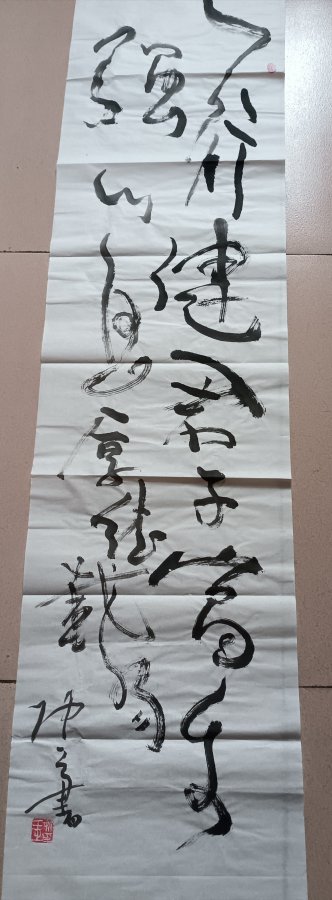 天行健君子當自
強不息厚德載物
書